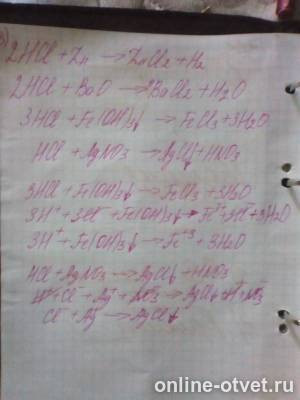 2HCl + Zn → ZnCl₂ + H₂
2HCl + BaO → BaCl₂ + H₂O
3HCl + Fe(OH)₃↓ → FeCl₃ + 3H₂O
HCl + AgNO₃ → AgCl↓ + HNO₃
3HCl + Fe(OH)₃↓ → FeCl₃ + 3H₂O
3H⁺ + 3Cl⁻ + Fe(OH)₃↓ → Fe⁺³ + 3Cl⁻ + 3H₂O
3H⁺ + Fe(OH)₃↓ → Fe⁺³ + 3H₂O
HCl + AgNO₃ → AgCl↓ + HNO₃
H⁺ + Cl⁻ + Ag⁺ + NO₃⁻ → AgCl↓ + H⁺ + NO₃⁻
Cl⁻ + Ag⁺ → AgCl↓
online-otvet.ru